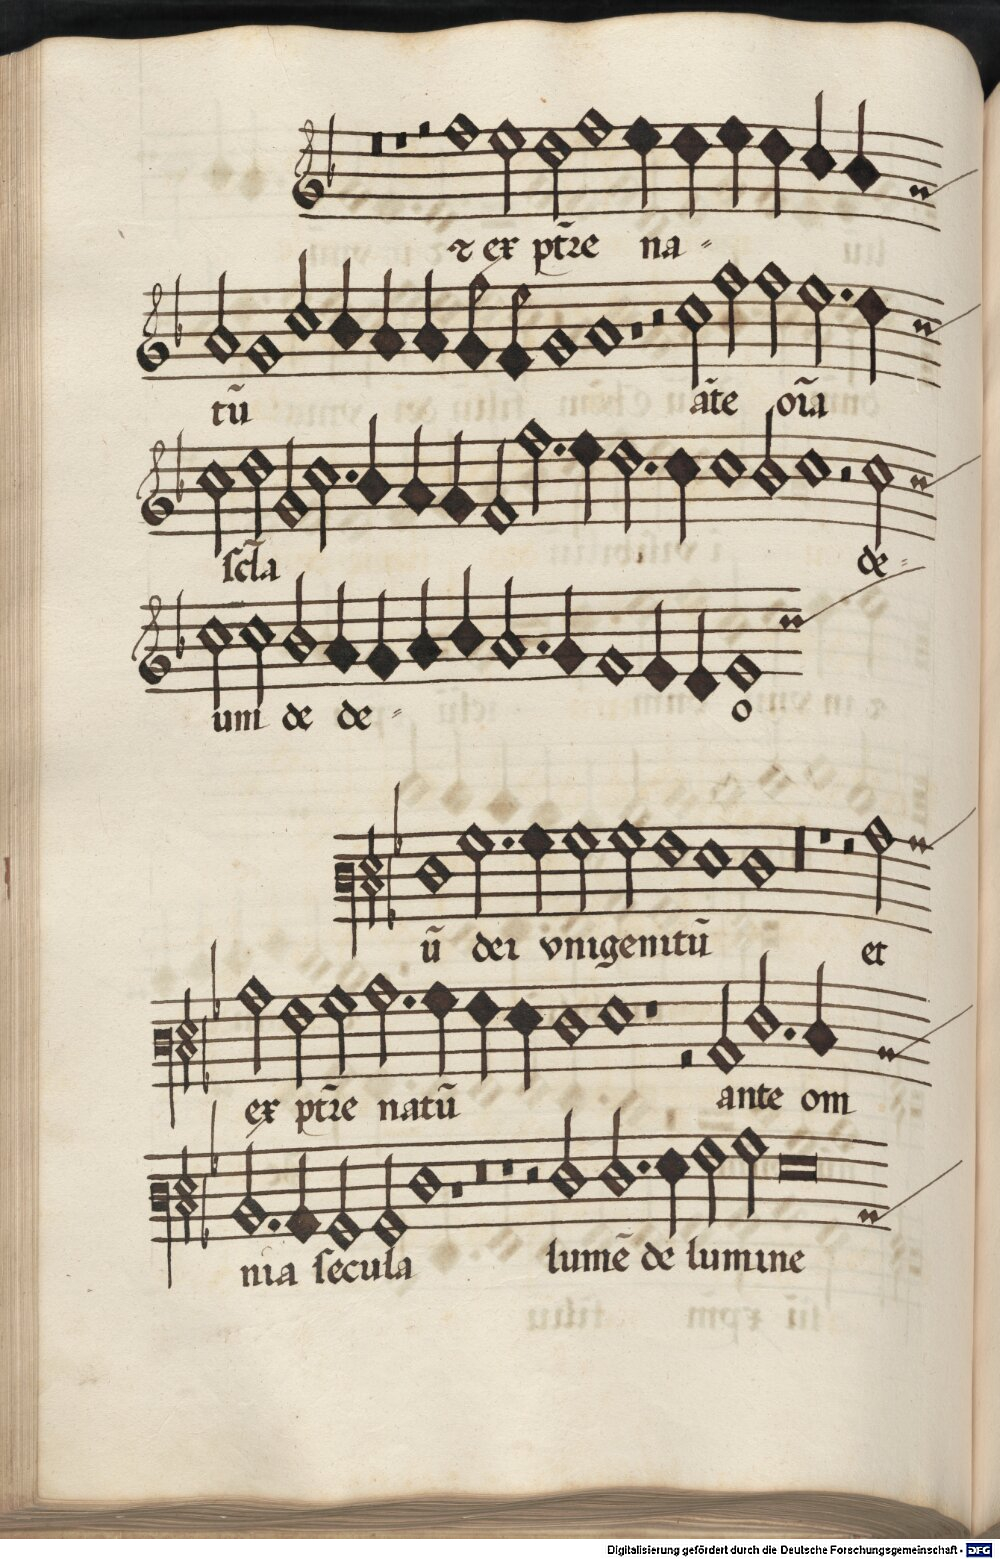 ⁊ ex pr̃e na-
tũ añte oĩa
ſcl̃a de-
um de de- o
ũ dei vnigenitũ et
ex pr̃e natũ ante om
nia ſecula lumẽ de lumine
Digitalisierung gefördert durch die Deutsche Forschungsgemeinschaft - DFG